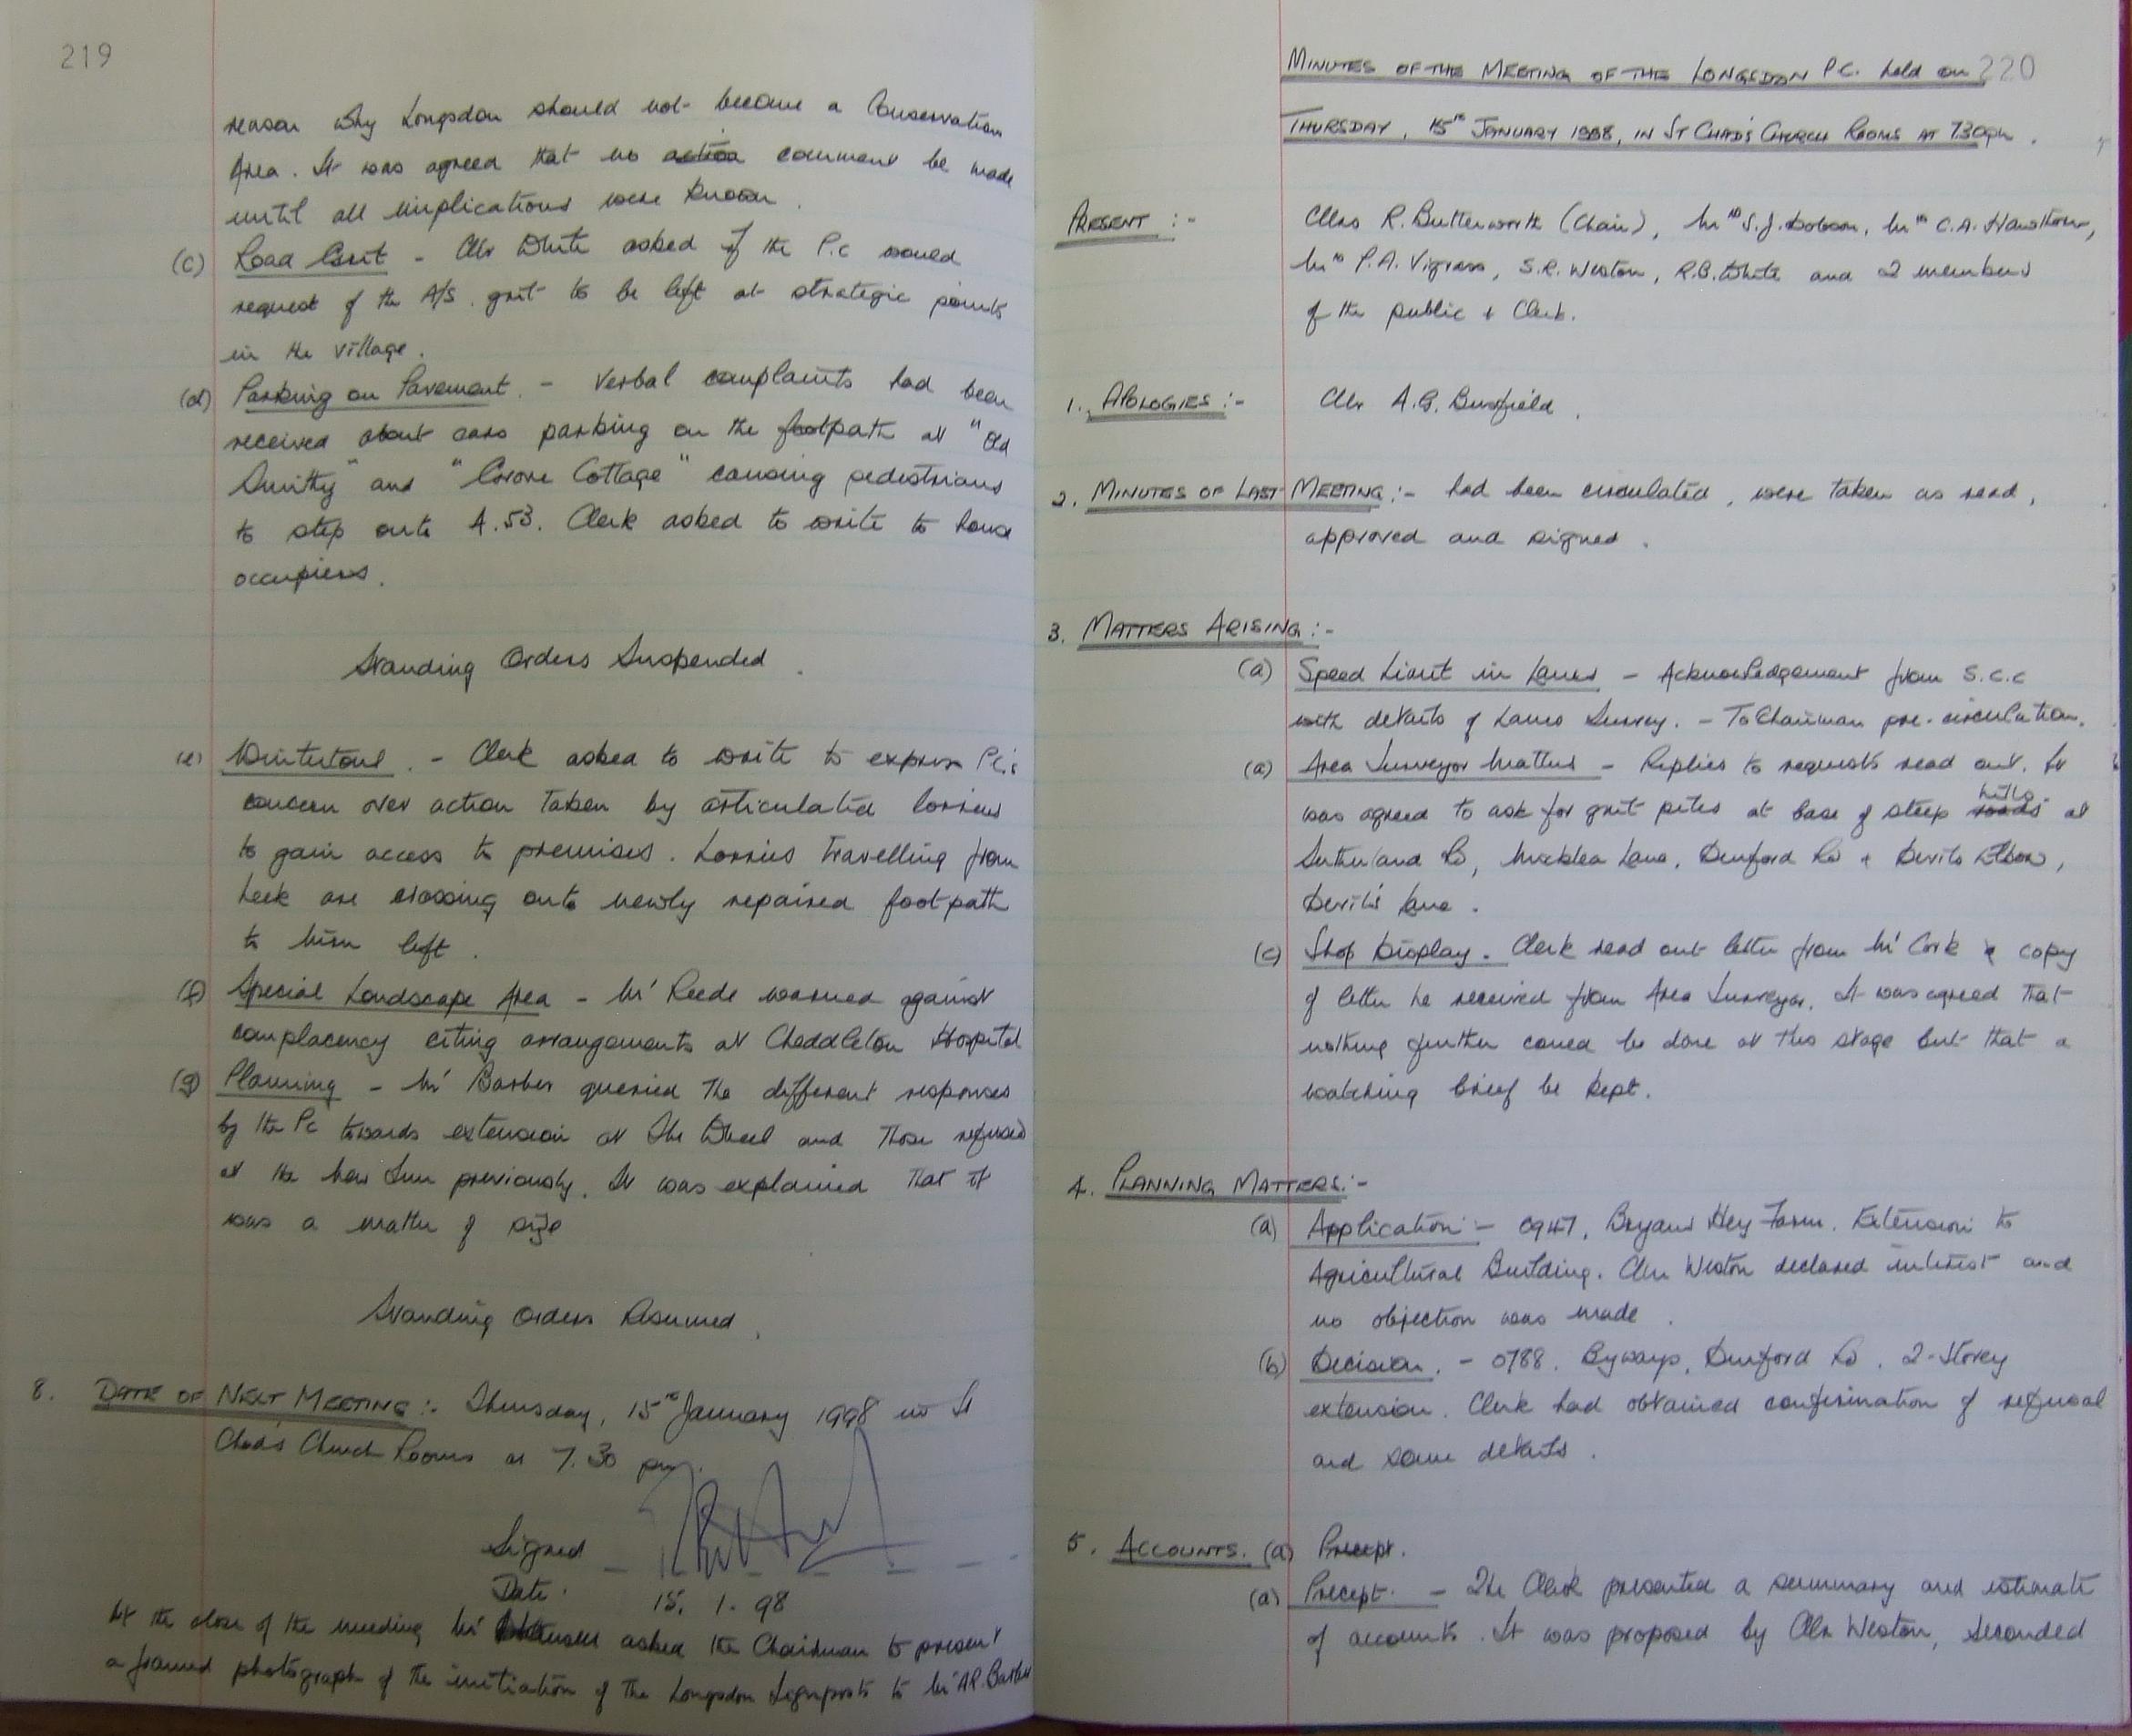 219
reason why Longsdon should not become a Conservation
Area. It was agreed that no action comment be made
until all implications were known.
(c) Road Grit - Cllr White asked if the P.C would
request of the A/S. grit to be left at strategic points
in the village.
(d) Parking on Pavement. - Verbal complaints had been
received about cars parking on the footpath at "Old
Smithy" and "Grove Cottage" causing pedestrians
to step onto A.53. Clerk asked to write to house
occupiers.
Standing Orders Suspended.
(e) Wintertons. - Clerk asked to write to express P.C's
concern over action taken by articulated lorries
to gain access to premises. Lorries travelling from
Leek are crossing onto newly repaired footpath
to turn left.
(f) Special Landscape Area - Mr Reede warned against
complacency citing arrangements at Cheddleton Hospital
(g) Planning - Mr Barber queried the different responses
by the Pc towards extension at The Wheel and those refused
at the New Inn previously. It was explained that it
was a matter of size
Standing Orders Resumed.
8. DATE OF NEXT MEETING:- Thursday, 15th January 1998 in St
Chad's Church Rooms at 7.30 pm.
Signed
Date. 15. 1. 98
At the close of the meeting Mr asked the Chairman to present
a framed photograph of the initiation of the Longsdon Signposts to Mr A.R. Barber
MINUTES OF THE MEETING OF THE LONGSDON P.C. held on 220
THURSDAY, 15th JANUARY 1998, IN ST CHAD'S CHURCH ROOMS AT 7.30pm.
PRESENT :- Cllrs R. Butterworth (Chair), Mrs S.J. Dobson, Mrs C.A. Hawthorne,
Mrs P.A. Vigrass, S.R. Weston, R.B. White and 2 members
of the public + Clerk.
1. APOLOGIES :- Cllr A.G. Burfield.
2. MINUTES OF LAST MEETING :- had been circulated, were taken as read,
approved and signed.
3. MATTERS ARISING :-
(a) Speed Limit in Lanes - Acknowledgement from S.C.C
with details of Lanes Survey. - To Chairman pre-circulation.
(a) Area Surveyor Matters - Replies to requests read out. It
was agreed to ask for grit piles at base of steep roads hills at
Sutherland Rd, Micklea Lane, Denford Rd + Devils Elbow,
Devil's Lane.
(c) Shop Display. Clerk read out letter from Mr Cork & copy
of letter he received from Area Surveyor. It was agreed that
nothing further could be done at this stage but that a
watching brief be kept.
4. PLANNING MATTERS:-
(a) Application:- 0947, Bryans Hey Farm. Extension to
Agricultural Building. Cllr Weston declared interest and
no objection was made.
(b) Decision. - 0788. Byways, Denford Rd. 2-Storey
extension. Clerk had obtained confirmation of refusal
and some details.
5. ACCOUNTS. (a) Precept.
(a) Precept. - The Clerk presented a summary and estimate
of accounts. It was proposed by Cllr Weston, seconded